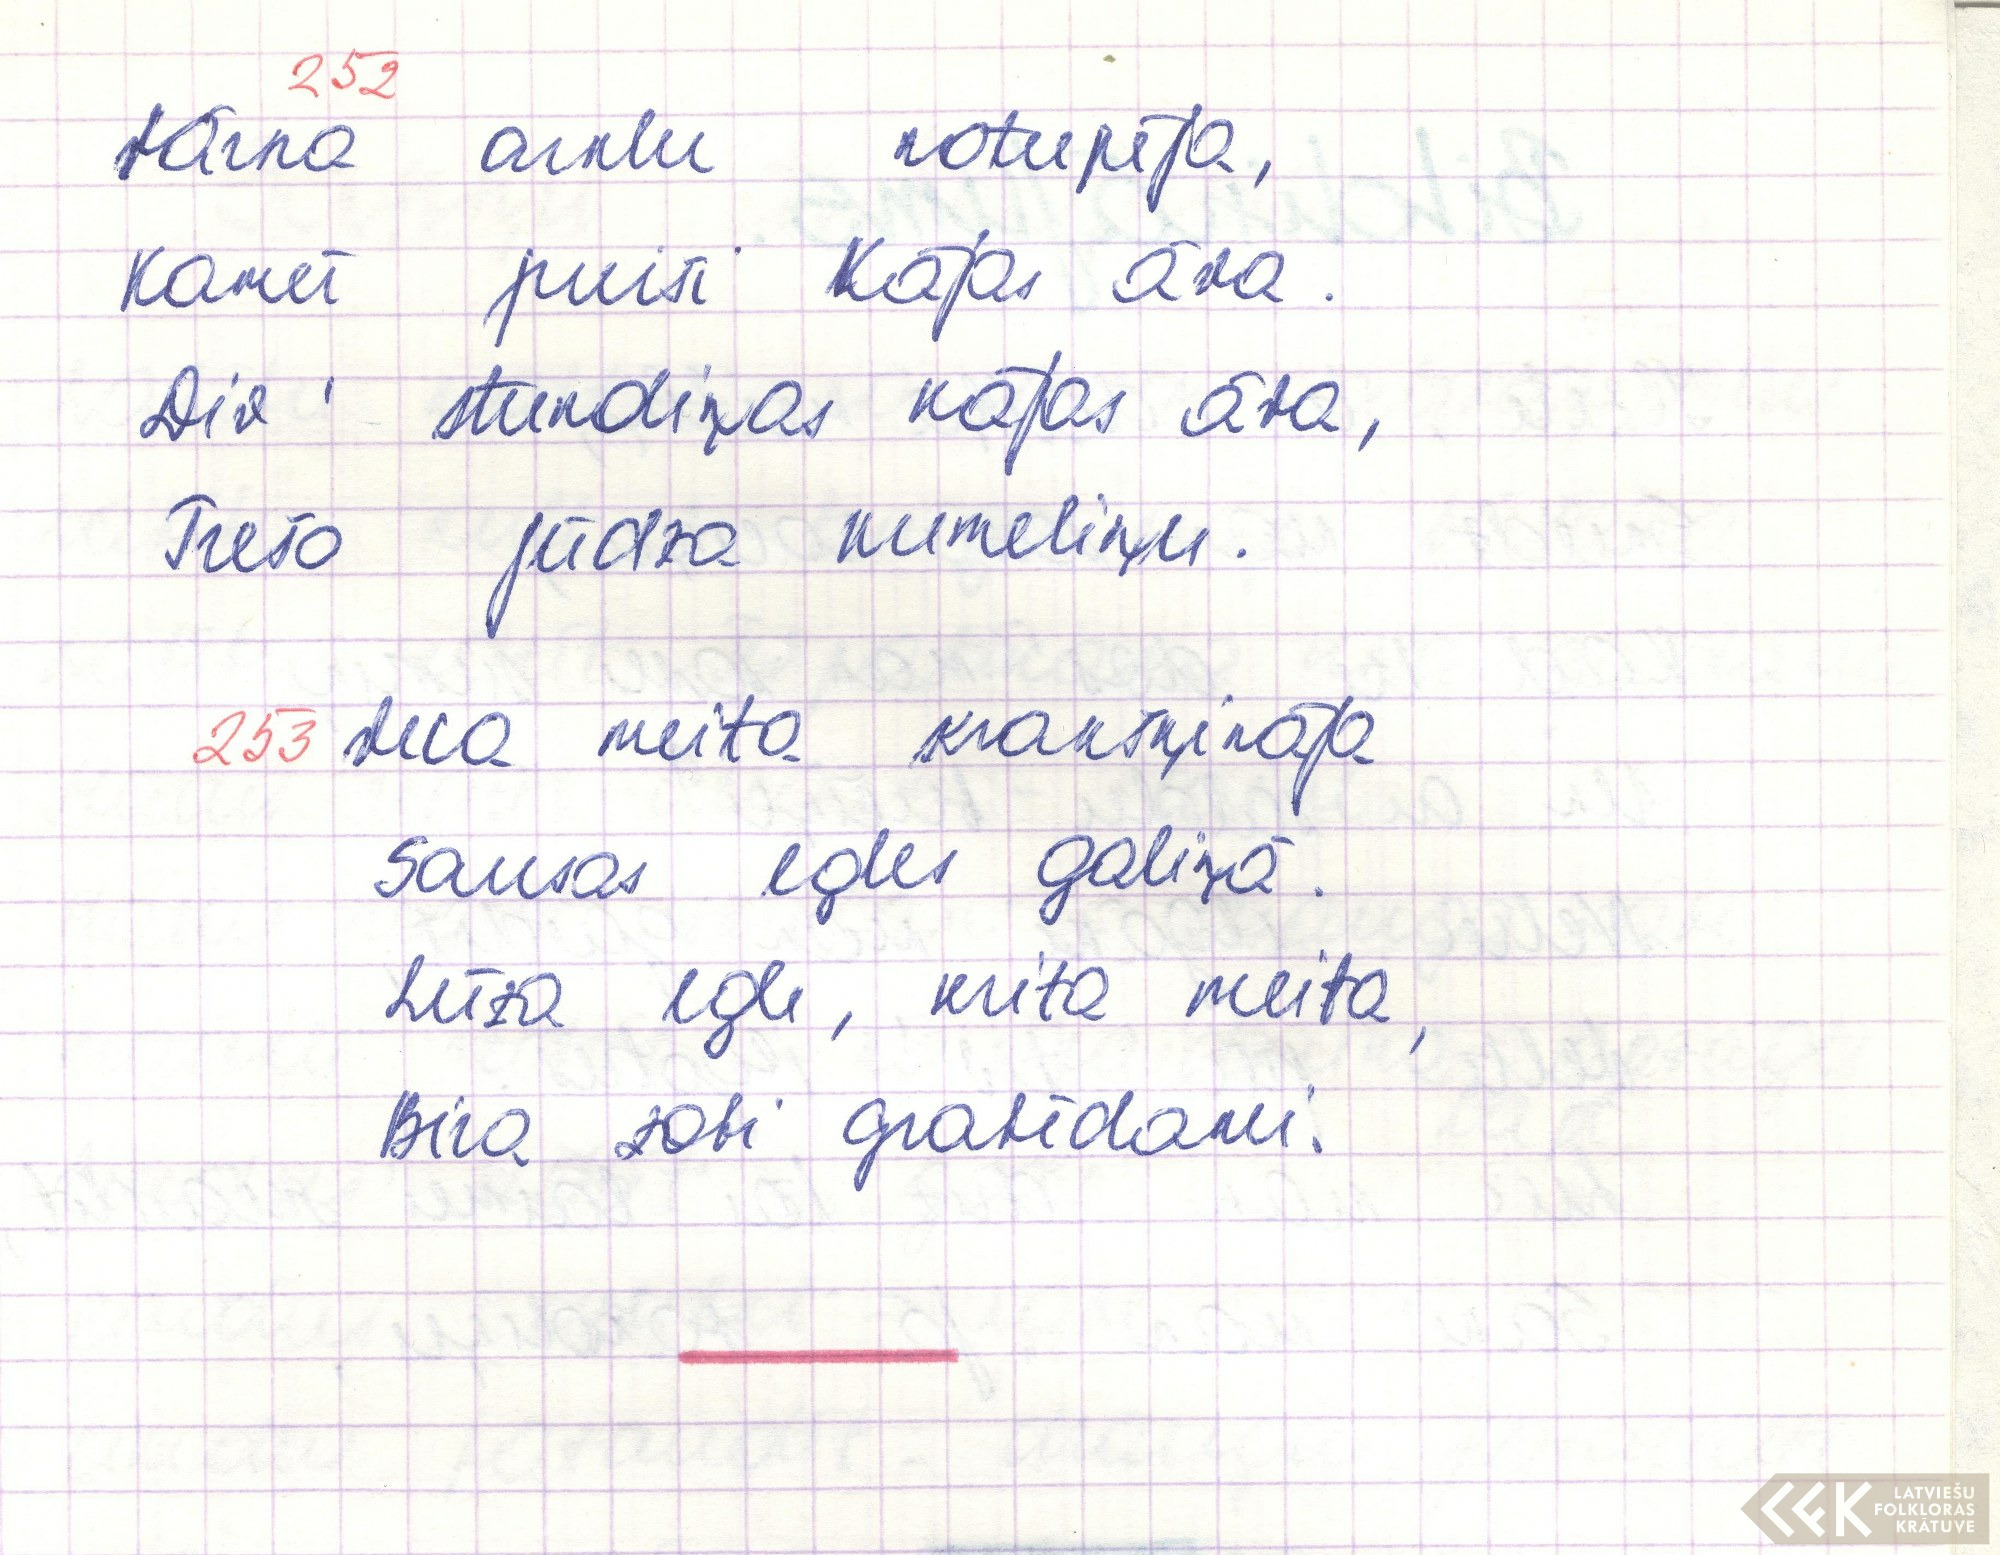 252
Vārna arklu notupēja,
Kamēr puiši kājas āva.
Div' stundiņas kājas āva,
Trešo jūdza kumeliņu.
253 Veca meita krankšķināja
Sausas egles galiņā.
Lūza egle, krita meita,
Bira zobi grabēdami.
LATVIEŠU
FOLKLORAS
KRĀTUVE